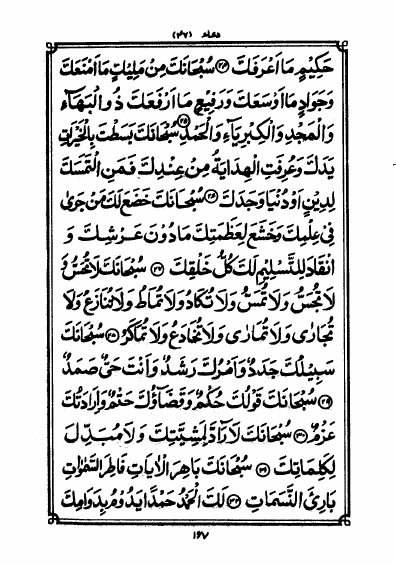 دعاء (٤٧)
حَكِيْمٍ مَا اَعْرَفَكَ ﴿٢٤﴾ سُبْحَانَكَ مِنْ مَلِيْكٍ مَا اَمْنَعَكَ
وَجَوَادٍ مَا اَوْسَعَكَ وَرَفِيْعٍ مَا اَرْفَعَكَ ذُو الْبَهَاءِ
وَالْمَجْدِ وَالْكِبْرِيَاءِ وَالْحَمْدِ ﴿٢٥﴾ سُبْحَانَكَ بَسَطْتَ بِالْخَيْرَاتِ
يَدَكَ وَعُرِفَتِ الْهِدَايَةُ مِنْ عِنْدِكَ فَمَنِ الْتَمَسَكَ
لِدِيْنٍ اَوْ دُنْيَا وَجَدَكَ ﴿٢٦﴾ سُبْحَانَكَ خَضَعَ لَكَ مَنْ جَرٰى
فِيْ عِلْمِكَ وَخَشَعَ لِعَظَمَتِكَ مَا دُوْنَ عَرْشِكَ وَ
انْقَادَ لِلتَّسْلِيْمِ لَكَ كُلُّ خَلْقِكَ ﴿٢٧﴾ سُبْحَانَكَ لَا تُحَسُّ وَ
لَا تُجَسُّ وَلَا تُمَسُّ وَلَا تُكَادُ وَلَا تُمَاطُ وَلَا تُنَازَعُ وَلَا
تُجَارٰى وَلَا تُمَارٰى وَلَا تُخَادَعُ وَلَا تُمَاكَرُ ﴿٢٨﴾ سُبْحَانَكَ
سَبِيْلُكَ جَدَدٌ وَ اَمْرُكَ رَشَدٌ وَ اَنْتَ حَيٌّ صَمَدٌ
﴿٢٩﴾ سُبْحَانَكَ قَوْلُكَ حُكْمٌ وَ قَضَاؤُكَ حَتْمٌ وَ اِرَادَتُكَ
عَزْمٌ ﴿٣٠﴾ سُبْحَانَكَ لَا رَادَّ لِمَشِيَّتِكَ وَلَا مُبَدِّلَ
لِكَلِمَاتِكَ ﴿٣١﴾ سُبْحَانَكَ بَاهِرَ الْاٰيَاتِ فَاطِرَ السَّمٰوَاتِ
بَارِئَ النَّسَمَاتِ ﴿٣٢﴾ لَكَ الْحَمْدُ حَمْدًا يَدُوْمُ بِدَوَامِكَ
١٦٧